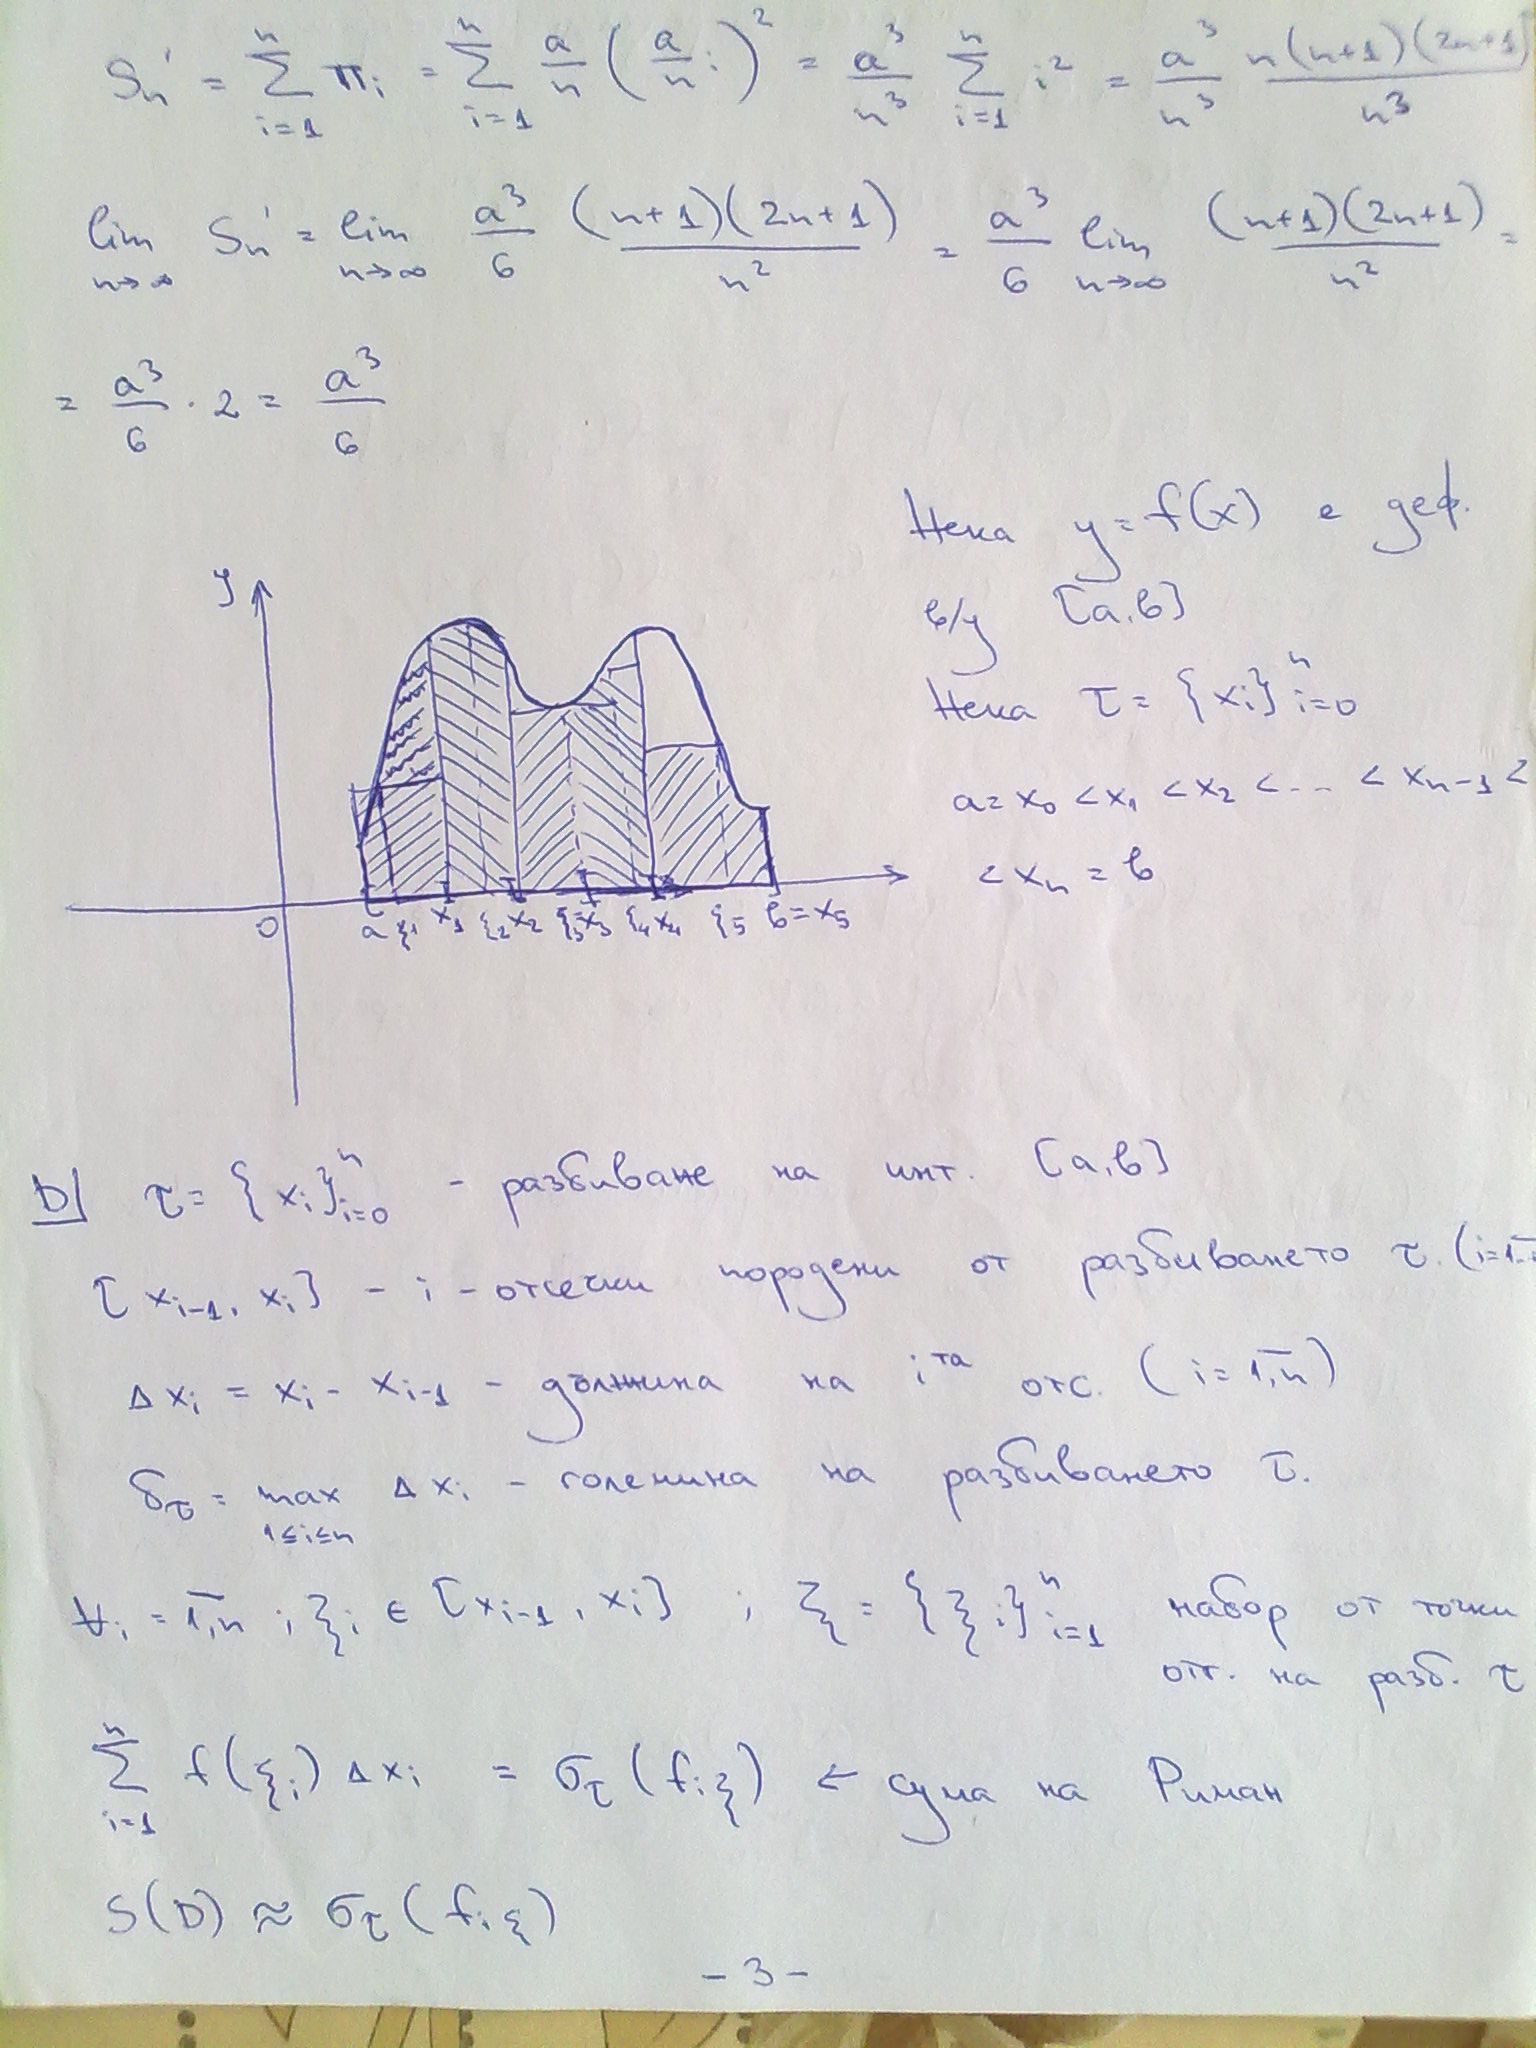 Sₙ' = ∑ᵢ₌₁ⁿ πᵢ = ∑ᵢ₌₁ⁿ a/n (a/n i)² = a³/n³ ∑ᵢ₌₁ⁿ i² = a³/n³ n(n+1)(2n+1)/n³
lim n→∞ Sₙ' = lim n→∞ a³/6 (n+1)(2n+1)/n² = a³/6 lim n→∞ (n+1)(2n+1)/n² =
= a³/6 · 2 = a³/6
Нека y = f(x) е деф.
в/у [a,b]
Нека τ = {xᵢ}ⁿᵢ₌₀
a = x₀ < x₁ < x₂ < ... < xₙ₋₁ <
< xₙ = b
y
0 a ξ₁ x₁ ξ₂ x₂ ξ₃ x₃ ξ₄ x₄ ξ₅ b = x₅
D| τ = {xᵢ}ⁿᵢ₌₀ - разбиване на инт. [a,b]
[xᵢ₋₁, xᵢ] - i - отсечки породени от разбиването τ. (i=1,
Δxᵢ = xᵢ - xᵢ₋₁ - дължина на iта отс. (i = 1,n)
δτ = max 1≤i≤n Δxᵢ - големина на разбиването τ.
∀i = 1,n ; ξᵢ ∈ [xᵢ₋₁, xᵢ] ; ξ = {ξᵢ}ⁿᵢ₌₁ набор от точки
отг. на разб. τ
∑ᵢ₌₁ⁿ f(ξᵢ) Δxᵢ = στ(f; ξ) ← сума на Риман
S(D) ≈ στ(f; ξ)
- 3 -